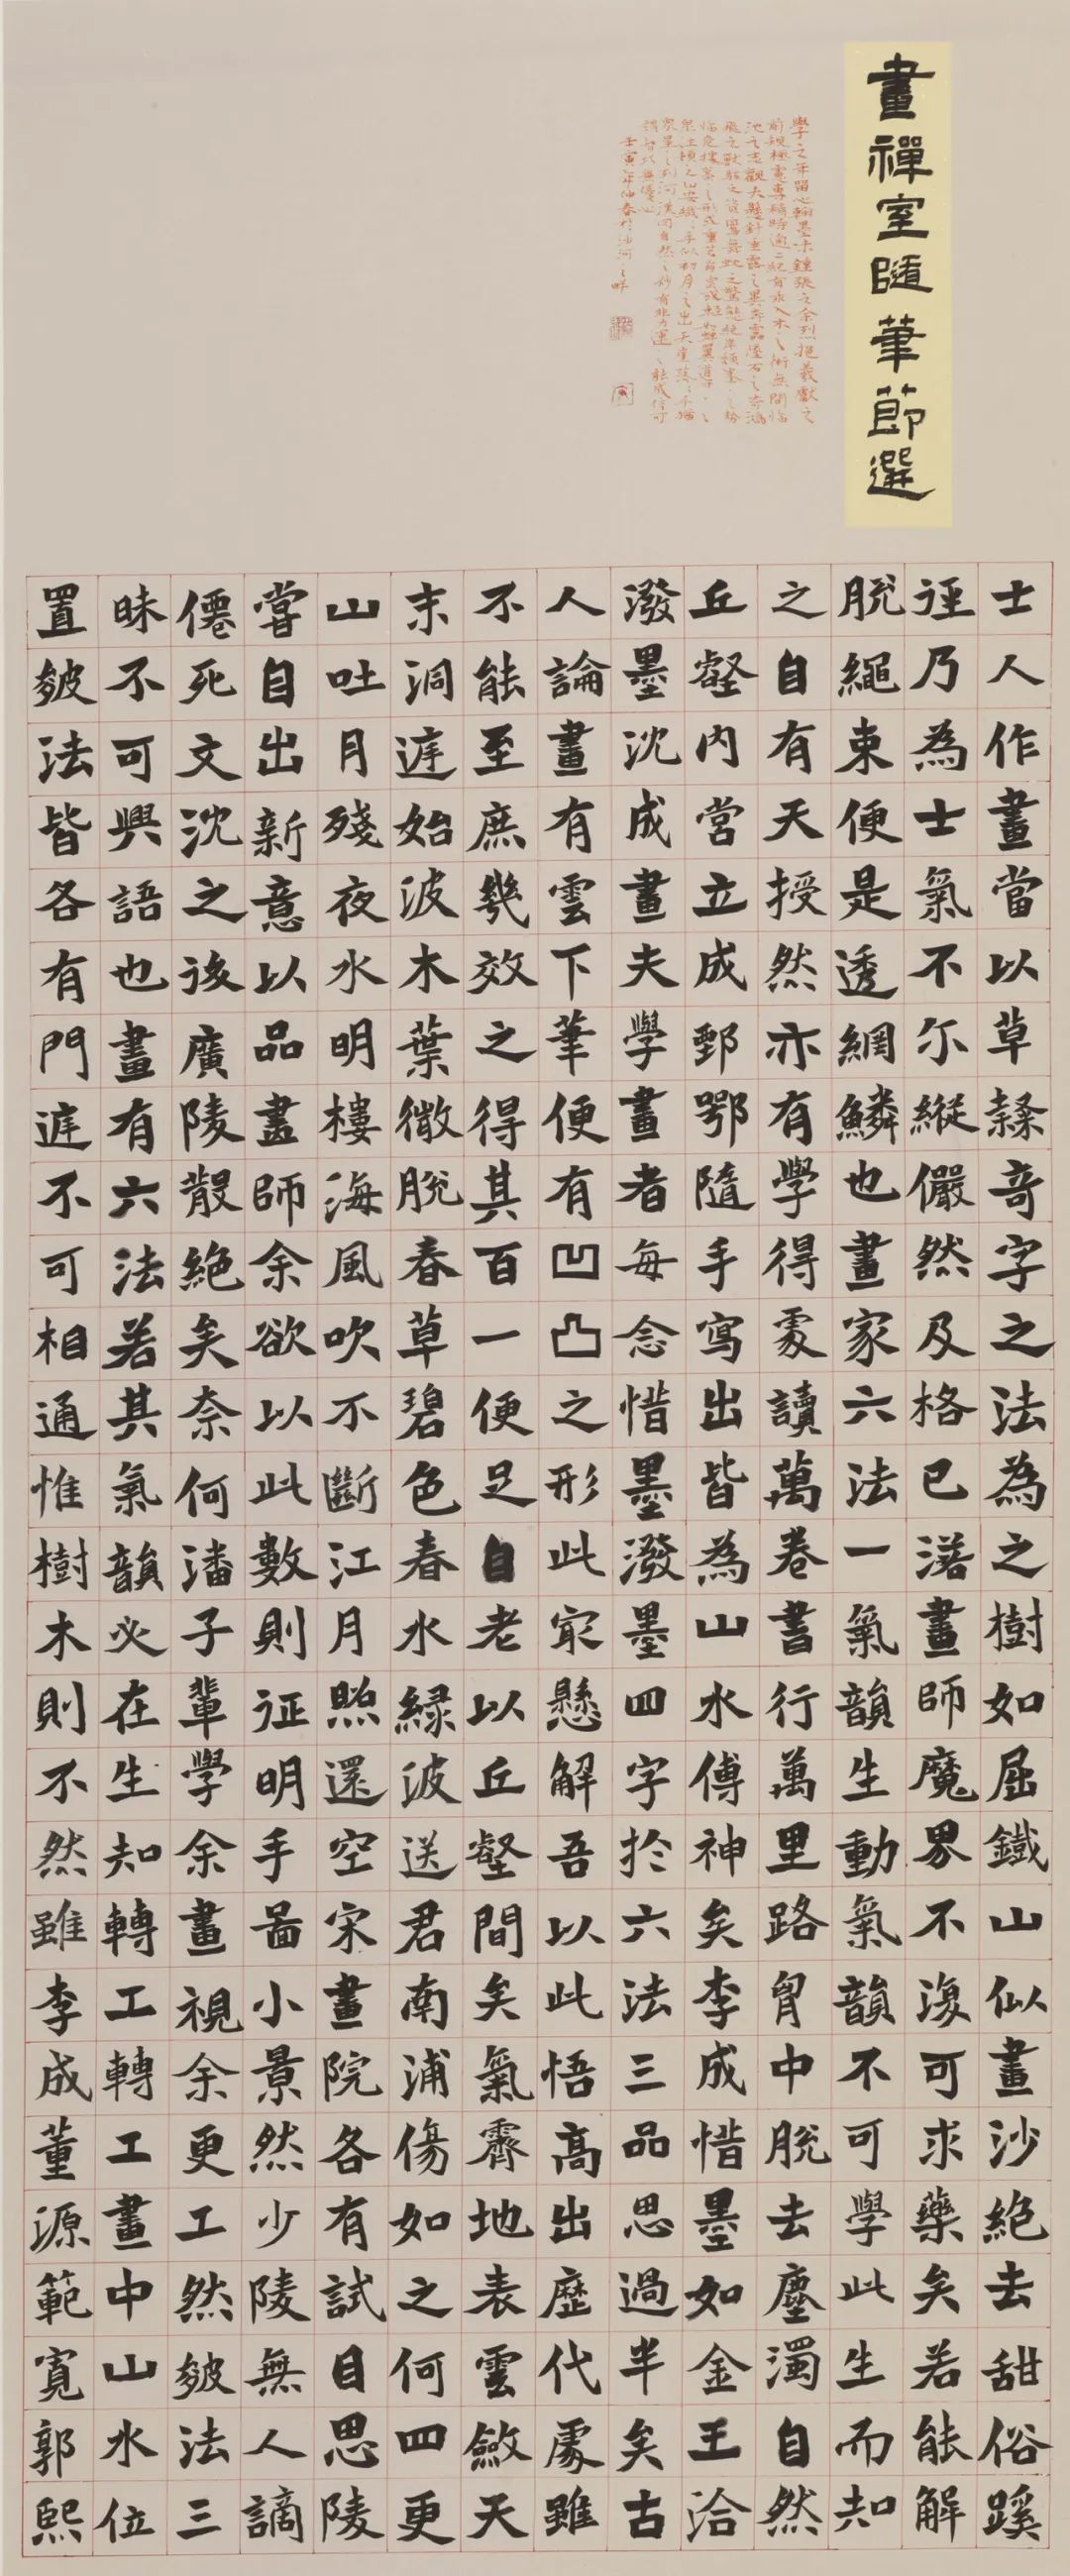 畫禪室隨筆節選
學之年留心翰墨味鍾張之余烈挹羲獻之
前規極慮專精時逾二紀有乖入木之術無間臨
池之志觀夫懸針垂露之異奔雷墜石之奇鴻
眾星之列河漢同自然之妙有非力運之能成信可
壬寅年仲春於沙河之畔
士人作畫當以草隸奇字之法為之樹如屈鐵山似畫沙絕去甜俗蹊
徑乃為士氣不尔縱儼然及格已落畫師魔界不復可求藥矣若能解
脫繩束便是透網鱗也畫家六法一氣韻生動氣韻不可學此生而知
之自有天授然亦有學得處讀萬卷書行萬里路胷中脫去塵濁自然
丘壑內營立成鄄鄂隨手寫出皆為山水傳神矣李成惜墨如金王洽
潑墨沈成畫夫學畫者每念惜墨潑墨四字於六法三品思過半矣古
人論畫有雲下筆便有凹凸之形此冣懸解吾以此悟高出歷代處雖
不能至庶幾效之得其百一便足自老以丘壑間矣氣霽地表雲斂天
末洞庭始波木葉微脫春草碧色春水綠波送君南浦傷如之何四更
山吐月殘夜水明樓海風吹不斷江月照還空宋畫院各有試目思陵
嘗自出新意以品畫師余欲以此數則征明手啚小景然少陵無人謫
僊死文沈之後廣陵散絕矣奈何潘子輩學余畫視余更工然皴法三
昧不可與語也畫有六法若其氣韻必在生知轉工轉工畫中山水位
置皴法皆各有門庭不可相通惟樹木則不然雖李成董源範寬郭熙